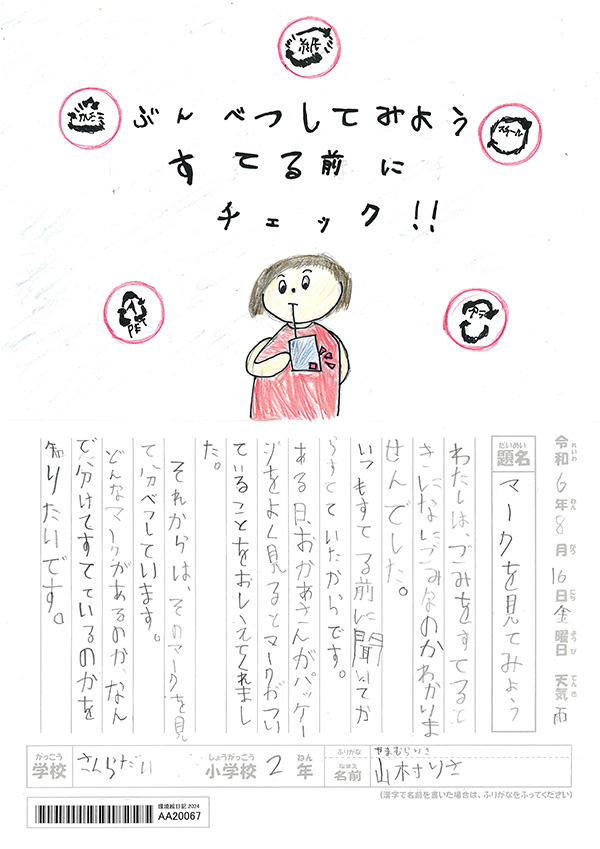 紙
カルミ
スチール
ぶんべつしてみよう
すてる前に
チェック!!
1
PET
プラ
令和6年8月16日金曜日 天気 雨
れいわ ねん がつ にち ようび てんき
だいめい
題名
マークを見てみよう
わたしは、ごみをすてると
きになにごみなのかわかりま
せんでした。
いつもすてる前に聞いてか
らすてていたからです。
ある日、おかあさんがパッケー
ジをよく見るとマークがつい
ていることをおしえてくれまし
た。
それからは、そのマークを見
て分べつしています。
どんなマークがあるのか、なん
で分けてすてているのかを
知りたいです。
がっこう
学校
さんらだい
しょうがっこう
小学校
2
ねん
年
ふりがな
やまむらりさ
なまえ
名前
山村りさ
(漢字で名前を書いた場合は、ふりがなをふってください)
環境絵日記 2024
AA20067